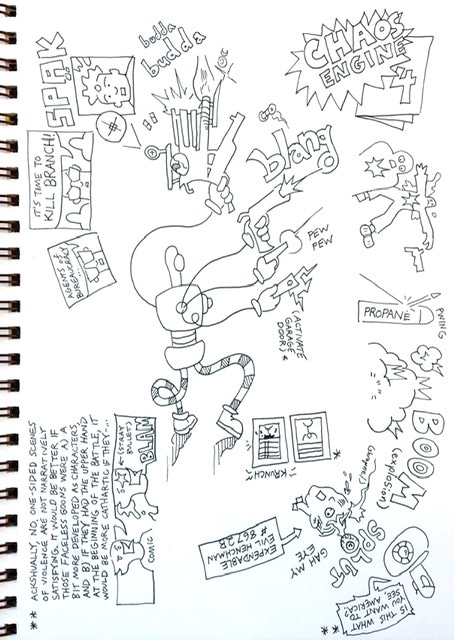 CHAOS
ENGINE
4
SPAK
budda
budda
IT'S TIME TO
KILL BRANCH!
AGENTS OF
BUREAUCRACY...
blang
PEW
PEW
(ACTIVATE
GARAGE
DOOR) *
PROPANE
PWING
BOOM
(explosion)
KRUNCH
BLAM
(STRAY
BULLET)
COMIC
SPLUT
GAH MY
EYE
EXPENDABLE
EVIL HENCHMAN
# 8672B
IS THIS WHAT
YOU WANT TO
SEE, AMERICA?
**
** ACKSHUALLY, NO, ONE-SIDED SCENES
OF VIOLENCE ARE NOT NARRATIVELY
SATISFYING. IT WOULD BE BETTER IF
THOSE FACELESS GOONS WERE A) A
BIT MORE DEVELOPED AS CHARACTERS,
AND B) IF THEY HAD THE UPPER HAND
AT THE BEGINNING OF THE BATTLE, IT
WOULD BE MORE CATHARTIC IF THEY-...